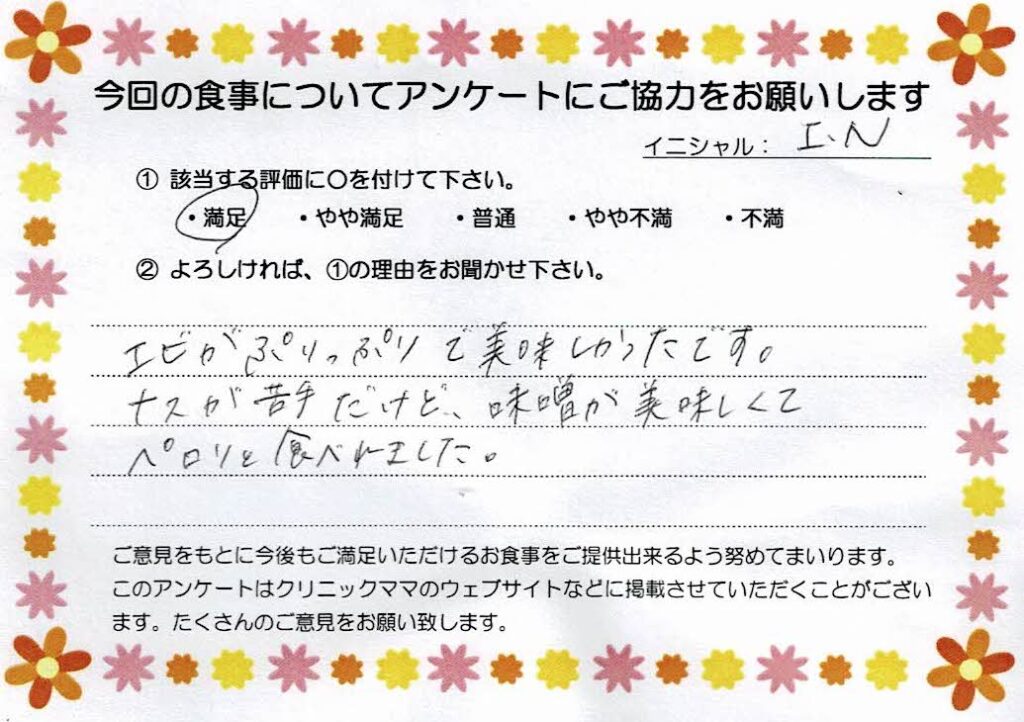 今回の食事についてアンケートにご協力をお願いします
イニシャル： I.N
① 該当する評価に〇を付けて下さい。
・満足 ・やや満足 ・普通 ・やや不満 ・不満
② よろしければ、①の理由をお聞かせ下さい。
エビがぷりっぷりで美味しかったです。
ナスが苦手だけど、味噌が美味しくて
ペロリと食べれました。
ご意見をもとに今後もご満足いただけるお食事をご提供出来るよう努めてまいります。
このアンケートはクリニックママのウェブサイトなどに掲載させていただくことがござい
ます。たくさんのご意見をお願い致します。